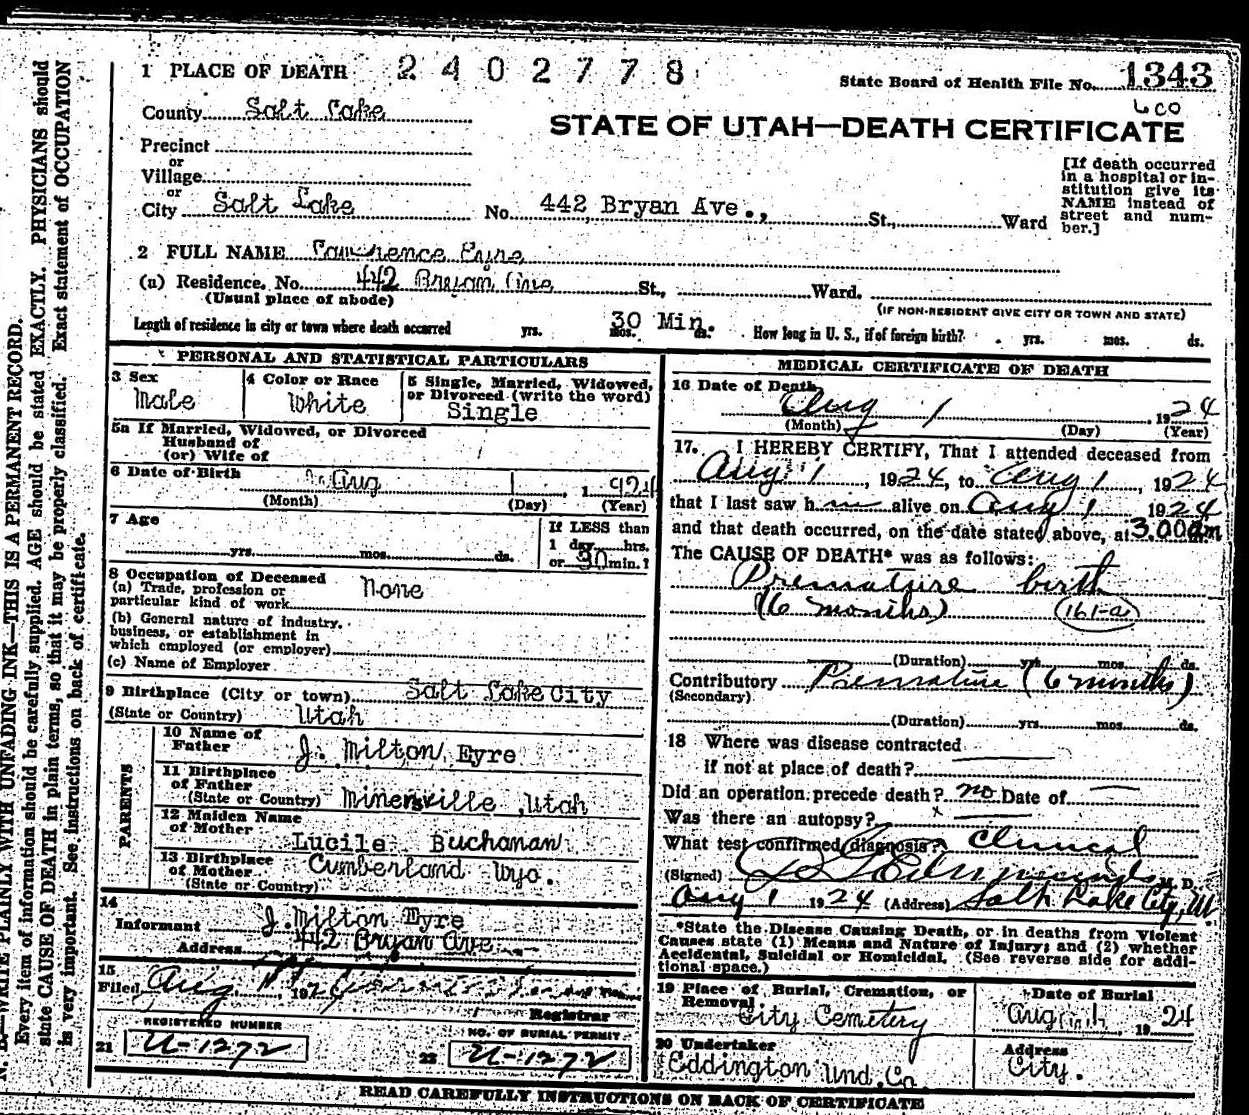 1 PLACE OF DEATH 2402778
State Board of Health File No. 1343
County Salt Lake
600
STATE OF UTAH—DEATH CERTIFICATE
Precinct
or
Village
or
City Salt Lake No. 442 Bryan Ave., St., Ward
[If death occurred
in a hospital or in-
stitution give its
NAME instead of
street and num-
ber.]
2 FULL NAME Lawrence Eyre
(a) Residence. No. 442 Bryan Ave St., Ward.
(Usual place of abode)
(IF NON-RESIDENT GIVE CITY OR TOWN AND STATE)
Length of residence in city or town where death occurred yrs. mos. 30 Min. ds. How long in U. S., if of foreign birth? yrs. mos. ds.
PERSONAL AND STATISTICAL PARTICULARS
3 Sex
Male
4 Color or Race
White
5 Single, Married, Widowed,
or Divorced (write the word)
Single
5a If Married, Widowed, or Divorced
Husband of
(or) Wife of
6 Date of Birth Aug 1, 1924
(Month) (Day) (Year)
7 Age
yrs. mos. ds.
If LESS than
1 day hrs.
or 30 min.?
8 Occupation of Deceased
(a) Trade, profession or
particular kind of work None
(b) General nature of industry,
business, or establishment in
which employed (or employer)
(c) Name of Employer
9 Birthplace (City or town) Salt Lake City
(State or Country) Utah
PARENTS
10 Name of
Father J. Milton Eyre
11 Birthplace
of Father
(State or Country) Minersville, Utah
12 Maiden Name
of Mother Lucile Buchanan
13 Birthplace
of Mother
(State or Country) Cumberland Wyo.
14
Informant J. Milton Eyre
Address 442 Bryan Ave
15
Filed Aug 192
Registrar
REGISTERED NUMBER
21 U-1272
NO. OF BURIAL PERMIT
22 U-1272
MEDICAL CERTIFICATE OF DEATH
16 Date of Death
Aug 1 1924
(Month) (Day) (Year)
17. I HEREBY CERTIFY, That I attended deceased from
Aug 1, 1924, to Aug 1, 1924
that I last saw him alive on Aug 1 1924
and that death occurred, on the date stated above, at 3.00am
The CAUSE OF DEATH* was as follows:
Premature birth
(6 months) 161-a
(Duration) yrs. mos. ds.
Contributory Premature (6 months)
(Secondary)
(Duration) yrs. mos. ds.
18 Where was disease contracted
if not at place of death?
Did an operation precede death? no Date of
Was there an autopsy?
What test confirmed diagnosis? Clinical
(Signed) M. D.
Aug 1 1924 (Address) Salt Lake City, Ut
*State the Disease Causing Death, or in deaths from Violent
Causes state (1) Means and Nature of Injury; and (2) whether
Accidental, Suicidal or Homicidal. (See reverse side for addi-
tional space.)
19 Place of Burial, Cremation, or
Removal.
City Cemetery
Date of Burial
Aug 1924
20 Undertaker
Eddington Und. Co.
Address
City.
READ CAREFULLY INSTRUCTIONS ON BACK OF CERTIFICATE
WRITE PLAINLY WITH UNFADING INK—THIS IS A PERMANENT RECORD.
Every item of information should be carefully supplied. AGE should be stated EXACTLY. PHYSICIANS should
state CAUSE OF DEATH in plain terms, so that it may be properly classified. Exact statement of OCCUPATION
is very important. See instructions on back of certificate.